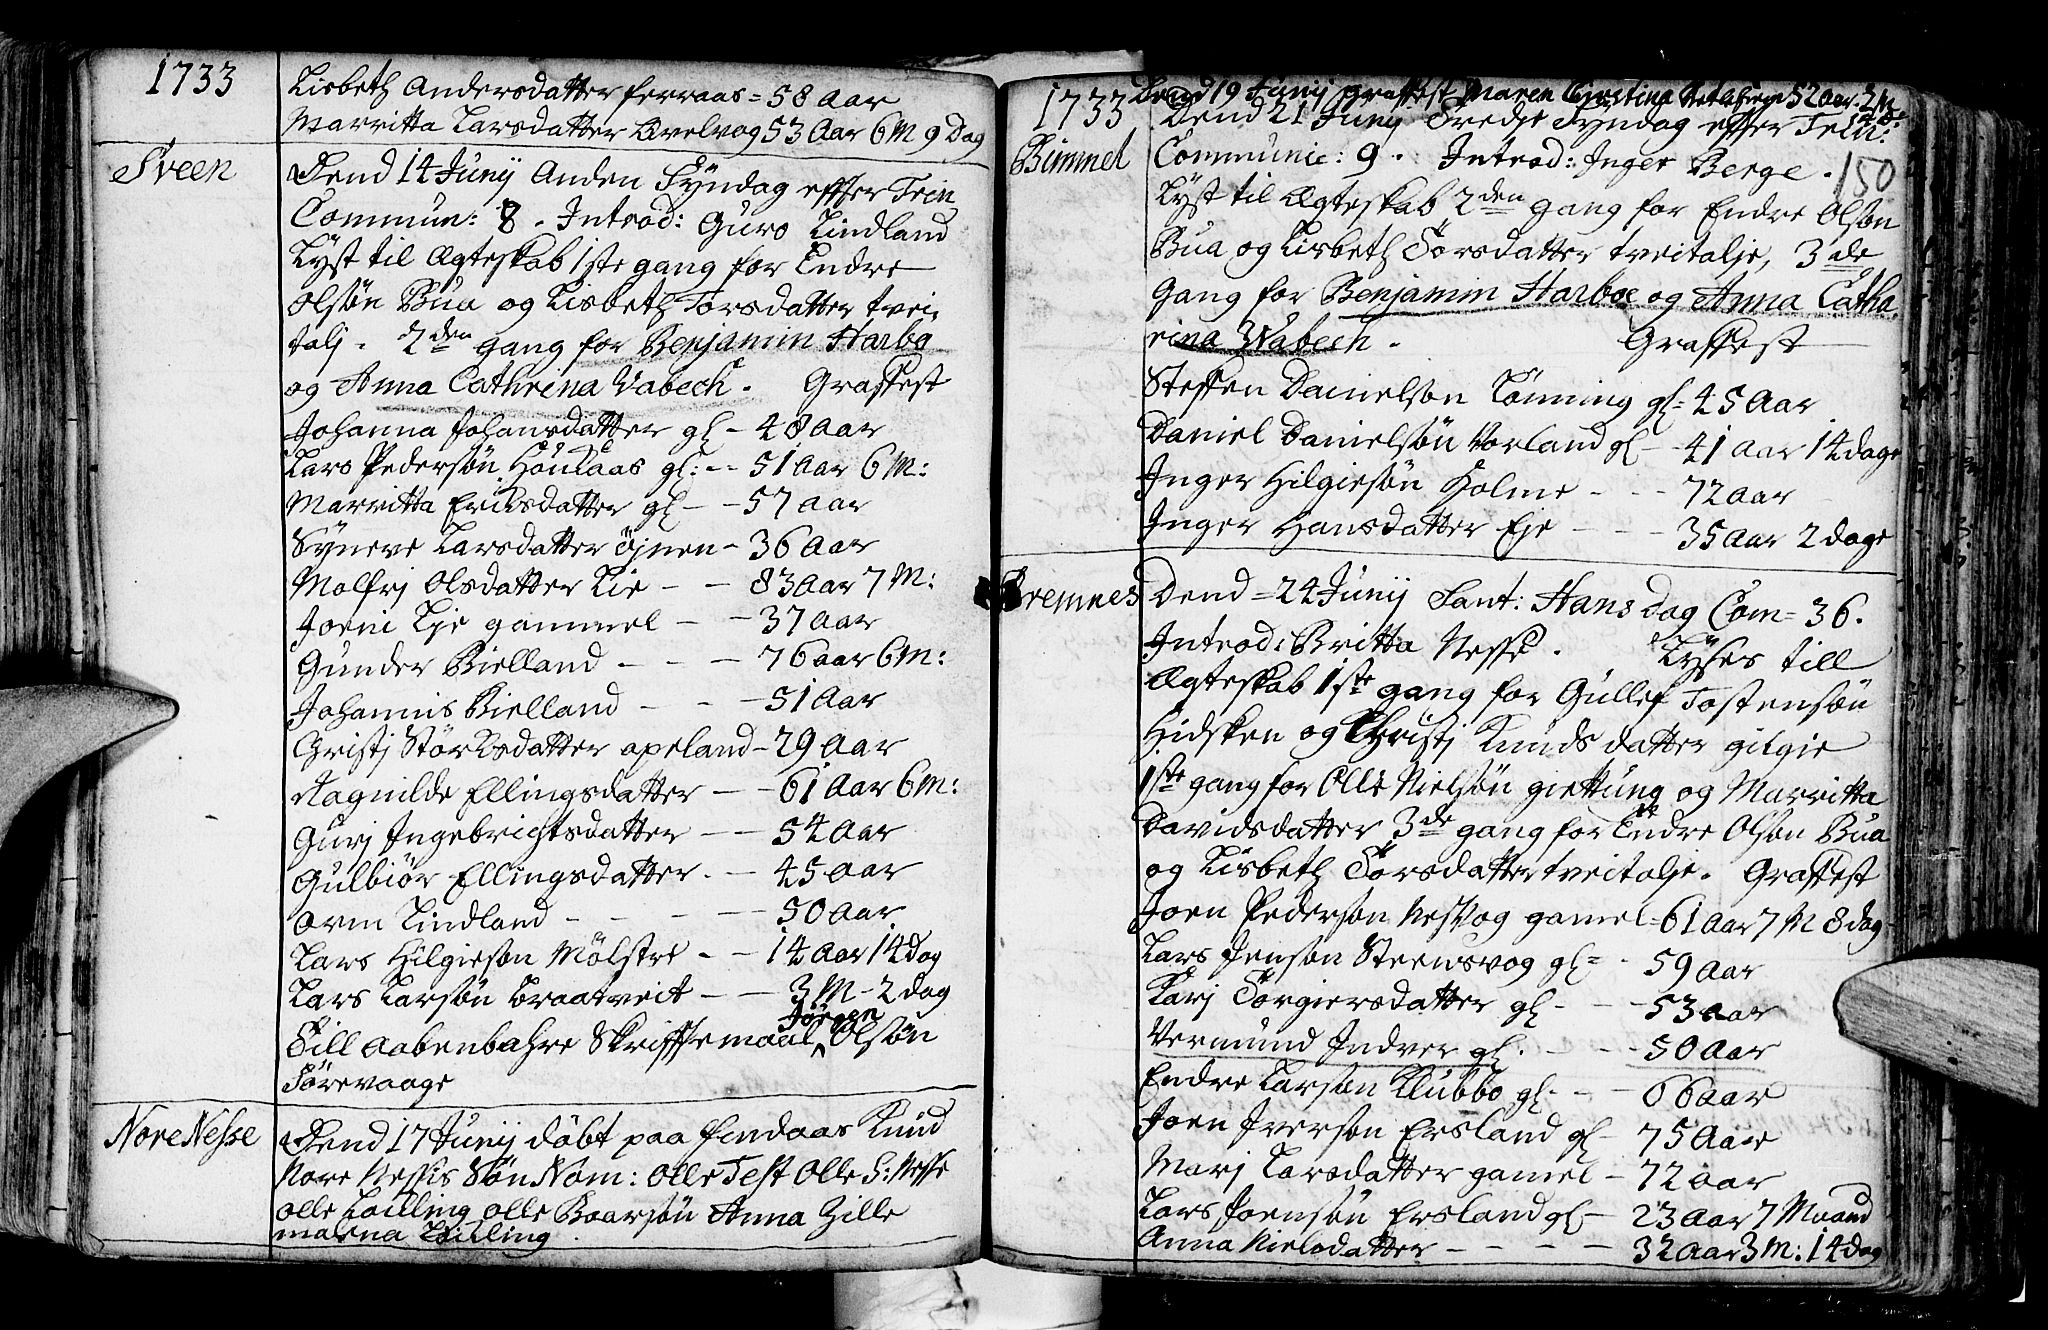 1733
Lisbeth Andersdatter ferraas = 58 Aar
Marritta Larsdatter Avelvog 53 Aar 6 M 9 Dag
Sveen
Dend 14 Junij Anden Syndag effter Trin
Commun: 8. Introd: Guro Lindland
Lyst til Ægteskab 1ste gang for Endre
Olsøn Bua og Lisbeth Torsdatter tvei
talj. 2den gang for Benjamin Harbo
og Anna Cathrina Wabech. Graffest
Johanna Johansdatter gl - 48 Aar
Lars Pedersøn Houkaas gl: -- 51 Aar 6 M:
Marritta Eriksdatter gl - - 57 aar
Syneve Larsdatter Øjnen - 36 Aar
Molfrj Olsdatter Lie - - 83 Aar 7 M:
Joeni Lje gammel - - 37 aar
Gunder Bielland - - - 76 aar 6 M:
Johannis Bielland - - - 51 Aar
Christj Størksdatter apeland - 29 Aar
Ragnilde Ellingsdatter - - 61 Aar 6 M:
Gurj Ingebrigtsdatter - - 54 Aar
Gulbiør Ellingsdatter. - 45 Aar
Orm Lindland - - - - 50 Aar
Lars Hilgiesøn Mølstre - - 14 Aar 14 Dag
Lars Larsøn Braatveit - - 3 M - 2 dag
Jørgen
Till Aabenbahre Skrifftemaal Olsøn
Førevaage
Nore Nesse
Dend 17 Junij døbt paa findaas Knud
Nore Nessis Søn Nom: Olle Test Olle S: Nesse
Olle Lailling Olle Boarsøn Anna Zille
malena Lailling.
Dend 19 Junij graffest Maren Christina 52 aar 2 M
1733
Dend 21 Junij Tredje Syndag effter Trin:
Bimmel
Communic: 9. Introd: Inger Berge. 150
Lyst til Ægteskab 2den gang for Endre Olsøn
Bua og Lisbeth Torsdatter tveitalje, 3de
Gang for Benjamin Harboe og Anna Catha
rina Wabech. Graffest
Steffen Danielsøn Lønning gl = 45 Aar
Daniel Danielsøn Vorland gl - 41 Aar 14 dage
Inger Hilgiesøn Holme - - - 72 aar
Inger Hansdatter Eje - - - 35 Aar 2 dage
Bremnes
Dend = 24 Junij Sant: Hans dag Com = 36.
Introd: Britta Nesse. Lyses till
Ægteskab 1ste gang for Gullef Tostensøn
Hidsken og Christj Knudsdatter gilgie
1ste gang for Olle Nielsøn gietlung og Marritta
Davidsdatter 3de gang for Endre Olsøn Bua
og Lisbeth Torsdatter tveitalje. Graffest
Joen Pedersøn Nesvog gamel = 61 Aar 7 M 8 dag
Lars Jensøn Steensvog gl = - 59 Aar
Karj Torgiersdatter gl - - - 53 aar
Vermund Indver gl. - - - 50 Aar
Endre Larsøn Klubbo gl - - 66 Aar
Joen Iversøn Ersland gl - 75 Aar
Marj Larsdatter gamel - 72 aar
Lars Joensøn Ersland gl - 23 Aar 7 Maand
Anna Nielsdatter - - - - 32 Aar 3 M: 14 dag